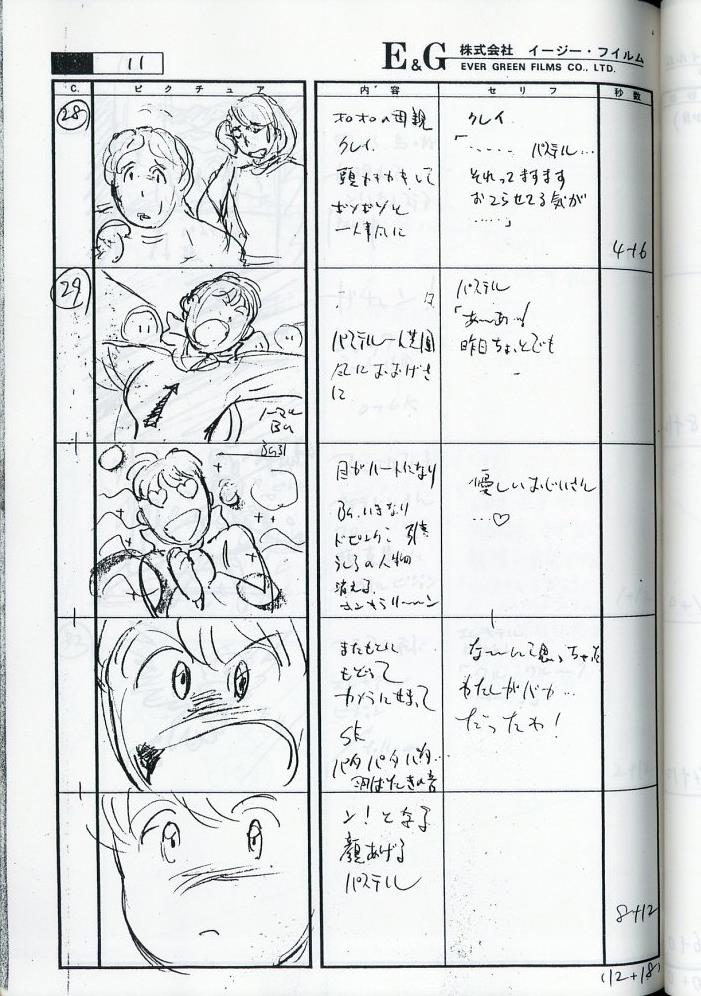 11
E&G 株式会社 イージー・フイルム
EVER GREEN FILMS CO., LTD.
C. ピクチュア 内容 セリフ 秒数
28
ポロポロの母親
クレイ.
頭かきかきして
ボソボソと
クレイ.
「…… パステル…
それってますます
おこらせてる気が
……」
4+6
29
ノーマル
BG
パステル一人芝居
風におおげさ
に
パステル
「あ〜あ…!
昨日ちょっとでも
BG31
目がハートになり
BG.いきなり
うしろの人物
消える.
優しいおじいさん
…♡
またもとに
もどって
カメラにせまって
パタパタパタ…
羽ばたきの音
な〜んて思っちゃった
わたしがバカ…
だったわ!
ン!となる
顔あげる
パステル
8+12
(12+18)